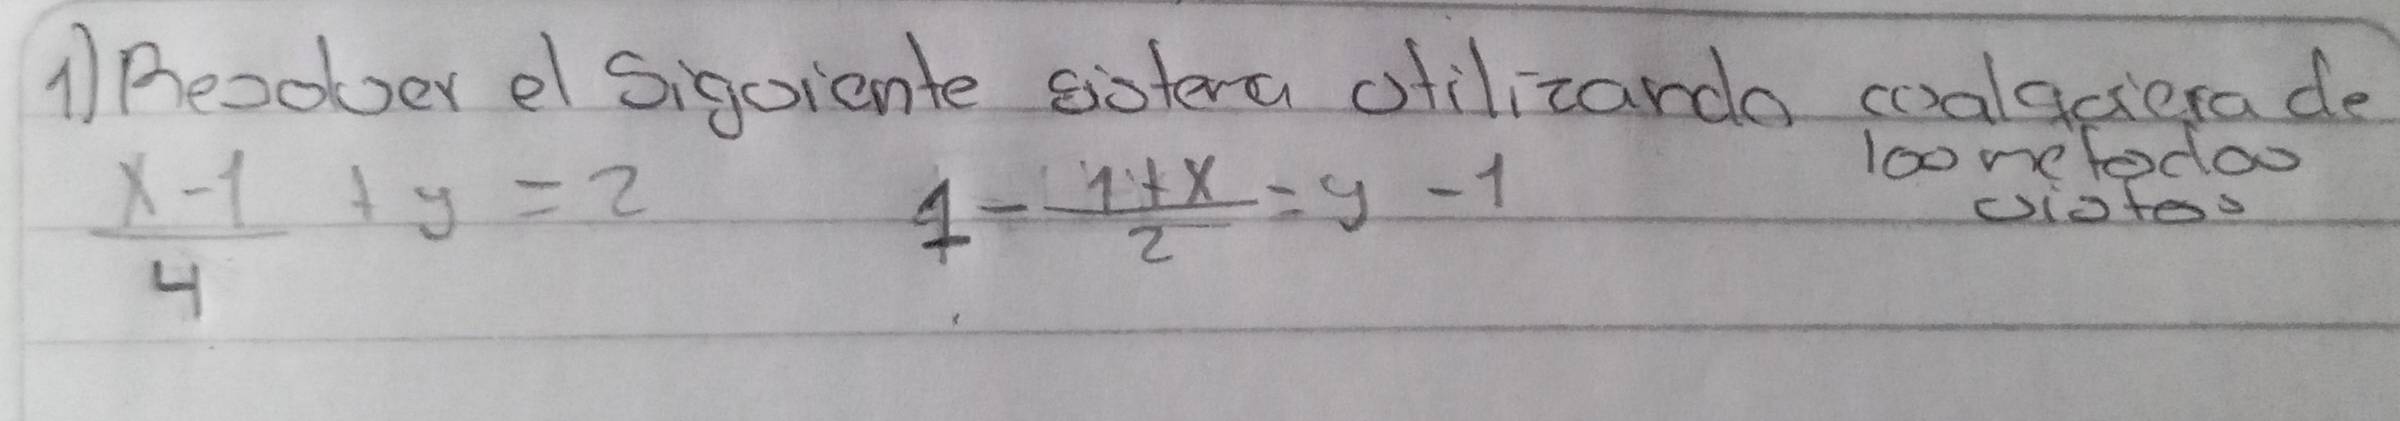 1) Resolver el Siguiente sistema utilizando cualquiera de
los metodos
vistos
x-1/4 + y = 2    1 - 1+x/2 = y - 1